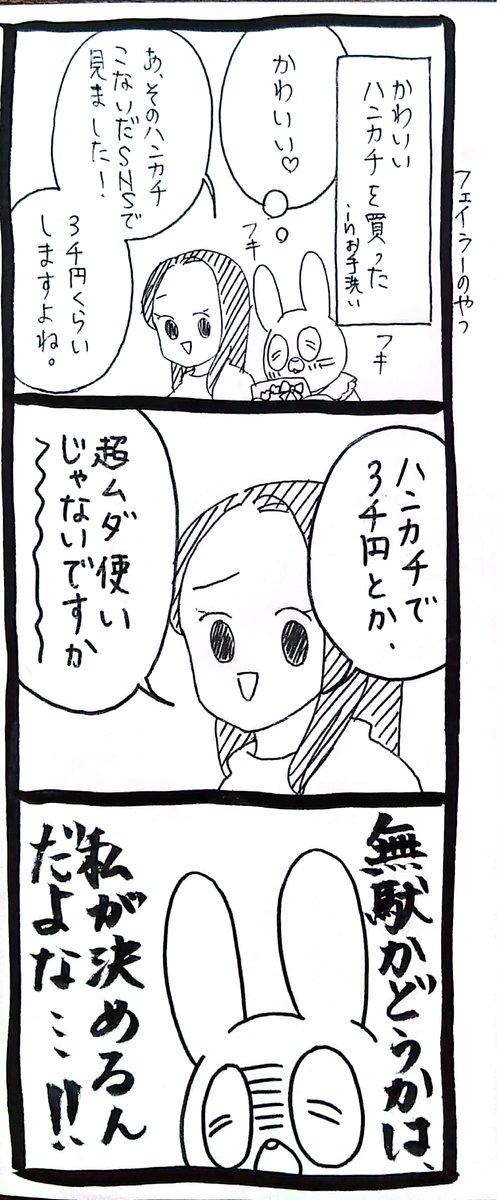 フェイラーのやつ
かわいい
ハンカチを買った
inお手洗い
かわいい♡
フキ
フキ
あ、そのハンカチ
こないだSNSで
見ました！
3千円くらい
しますよね。
ハンカチで
3千円とか、
超ムダ使い
じゃないですか
無駄かどうかは、
私が決めるん
だよな…!!